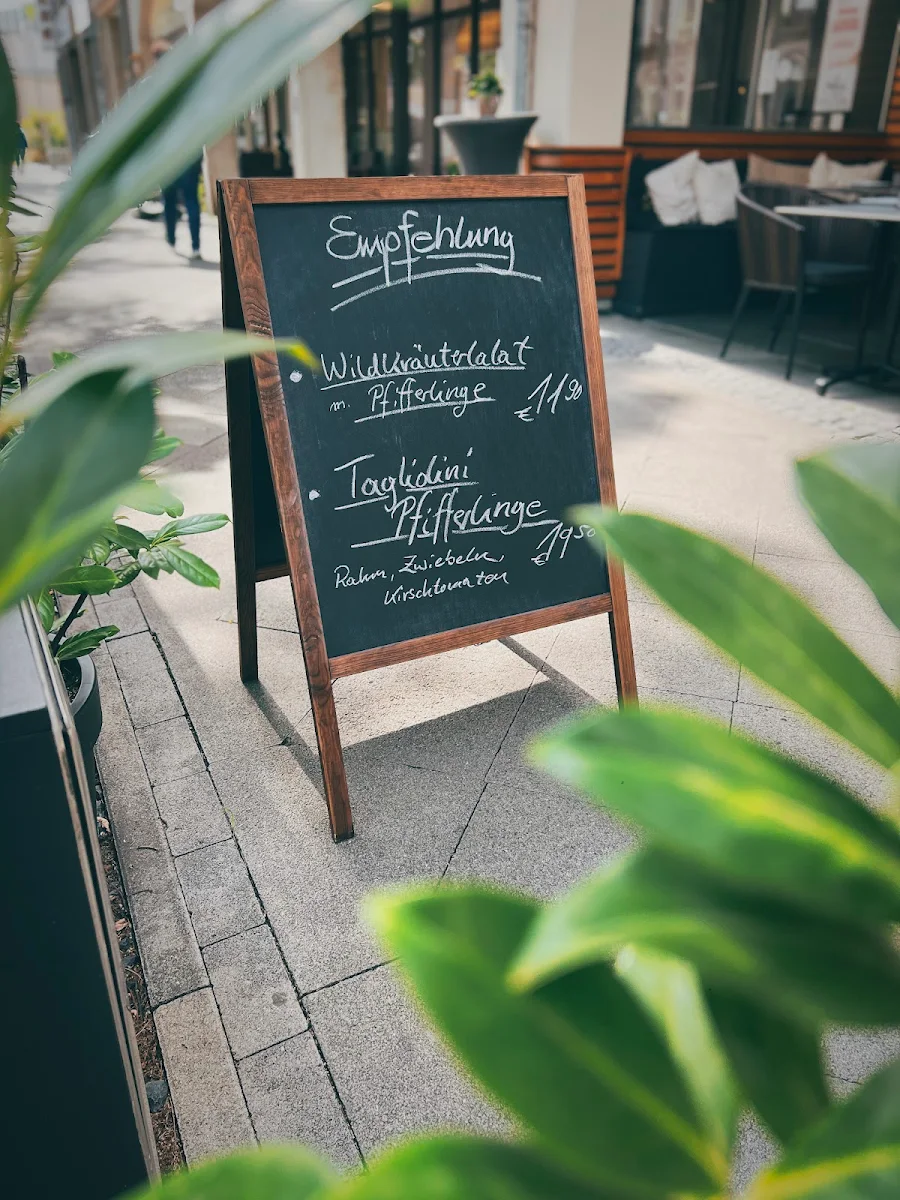 Empfehlung
Wildkräutersalat
m. Pfifferlinge
€ 11 90
Tagliolini
Pfifferlinge
Rahm, Zwiebeln,
€ 19 50
Kirschtomaten